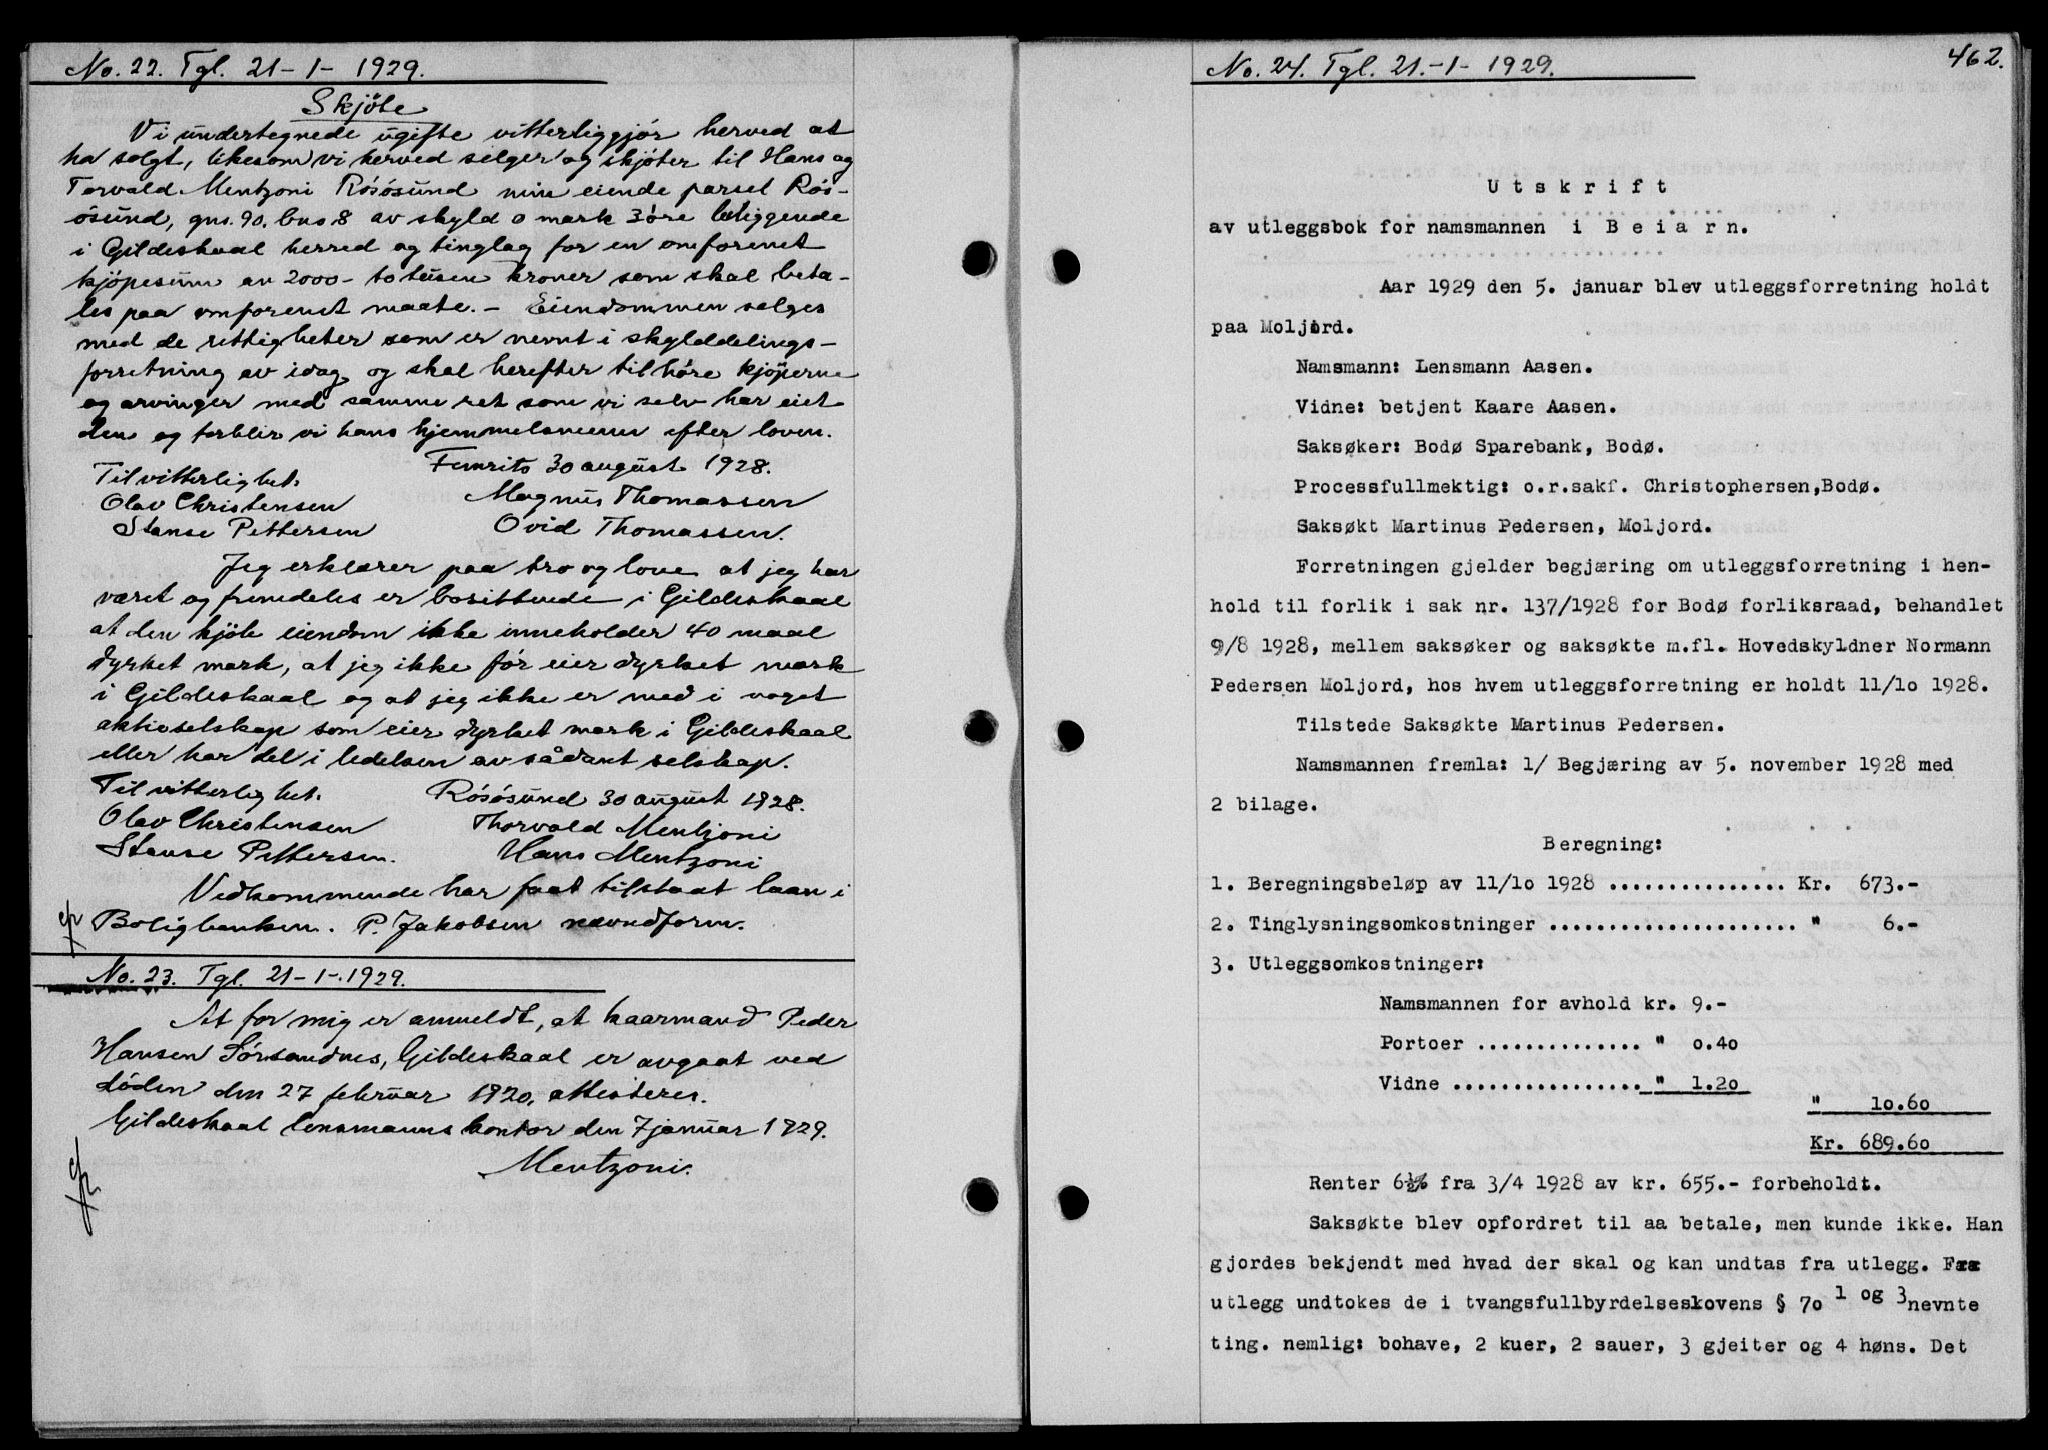 No. 22. Tgl. 21-1-1929.
Skjöte
Vi undertegnede ugifte vitterliggjör herved at
ha solgt, likesom vi herved selger og skjöter til Hans og
Torvald Mentzoni Rösösund min eiende parsel Rös-
ösund, gns. 90. bno 8 av skyld 0 mark 3 öre beliggende
i Gildeskaal herred og tinglag for en omforenet
kjöpesum av 2000- totusen kroner som skal beta-
les paa omforenet maate. - Eiendommen selges
med de rettigheter som er nevnt i skylddelings-
forretning av idag og skal herefter tilhöre kjöperne
og arvinger med samme ret som vi selv har eiet
den og forblir vi hans hjemmelsmenn efter loven.
30 august 1928.
Til vitterlighet.
Magnus Thomassen
Olav Christensen
Ovid Thomassen.
Stense Pettersen
Jeg erklærer paa tro og love at jeg har
været og fremdeles er bosittende i Gildeskaal
at den kjöte eiendom ikke inneholder 40 maal
dyrket mark, at jeg ikke för eier dyrket mark
i Gildeskaal og at jeg ikke er med i noget
aktieselskap som eier dyrket mark i Gildeskaal
eller har del i ledelsen av sådant selskap.
Til vitterlighet.
Rösösund 30 august 1928.
Olav Christensen
Thorvald Mentzoni
Stense Pettersen.
Hans Mentzoni
Vedkommende har faat tilstaat laan i
Boligbanken. P. Jakobsen nævndform.
No. 23. Tgl. 21-1-1929.
At for mig er anmeldt, at kaarmand Peder
Hansen Sörsandnes, Gildeskaal er avgaat ved
döden den 27 februar 1920, attesteres.
Gildeskaal lensmannskontor den 7 januar 1929.
Mentzoni.
462.
No. 24. Tgl. 21.-1-1929.
Utskrift
av utleggsbok for namsmannen i Beiarn.
Aar 1929 den 5. januar blev utleggsforretning holdt
paa Moljord.
Namsmann: Lensmann Aasen.
Vidne: betjent Kaare Aasen.
Saksøker: Bodø Sparebank, Bodø.
Processfullmektig: o.r.sakf. Christophersen,Bodø.
Saksøkt Martinus Pedersen, Moljord.
Forretningen gjelder begjæring om utleggsforretning i hen-
hold til forlik i sak nr. 137/1928 for Bodø forliksraad, behandlet
9/8 1928, mellem saksøker og saksøkte m.fl. Hovedskyldner Normann
Pedersen Moljord, hos hvem utleggsforretning er holdt 11/10 1928.
Tilstede Saksøkte Martinus Pedersen.
Namsmannen fremla: 1/ Begjæring av 5. november 1928 med
2 bilage.
Beregning:
1. Beregningsbeløp av 11/10 1928 ................ Kr. 673.-
2. Tinglysningsomkostninger ...................... " 6.-
3. Utleggsomkostninger:
Namsmannen for avhold kr. 9.-
Portoer ............... " 0.40
Vidne ................. " 1.20
" 10.60
Kr. 689.60
Renter 6½% fra 3/4 1928 av kr. 655.- forbeholdt.
Saksøkte blev opfordret til aa betale, men kunde ikke. Han
gjordes bekjendt med hvad der skal og kan undtas fra utlegg. Fra
utlegg undtokes de i tvangsfullbyrdelseslovens § 70 1 og 3 nevnte
ting. nemlig: bohave, 2 kuer, 2 sauer, 3 gjeiter og 4 høns. Det